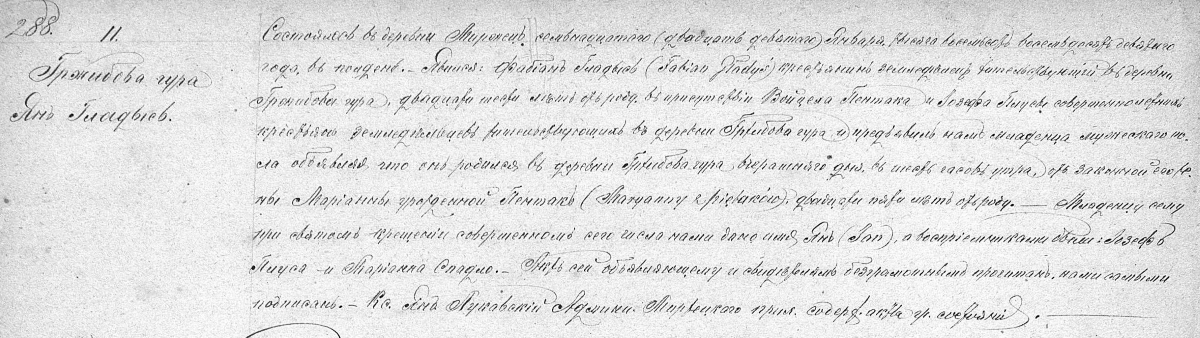 288.
11.
Гржибова гура
Янъ Гладысъ.
Состоялось въ деревни семьнадцатаго (двадцать девятаго) Января тысяча восемьсотъ восемьдесятъ девятаго
года, въ полдень. – Явился: Фабіанъ Гладысъ (Fabian Gładyś) крестьянинъ земледѣлецъ жительствующій въ деревни
Гржибова гура, двадцати шести лѣтъ отъ роду, въ присутствіи Пентака и Іозефа совершеннолѣтнихъ
крестьянъ земледѣльцевъ жительствующихъ въ деревни Гржибова гура и предъявилъ намъ младенца мужескаго по-
ла объявляя что онъ родился въ деревни Гржибова гура, вчерашняго дня, въ шесть часовъ утра, отъ законной его же-
ны Маріанны урожденной Пентакъ (Maryanny z Piętaków), двадцати пяти лѣтъ отъ роду. — Младенцу сему
при святомъ крещеніи совершенномъ сего числа нами дано имя Янъ (Jan), а воспріемниками были: Іозефъ
и Маріанна Спадло. – Актъ сей объявляющему и свидѣтелямъ безграмотнымъ прочитанъ, нами самыми
подписанъ. – Кс. Янъ Админи. Мирзецкого прих. содерж. акты гр. состоянія.